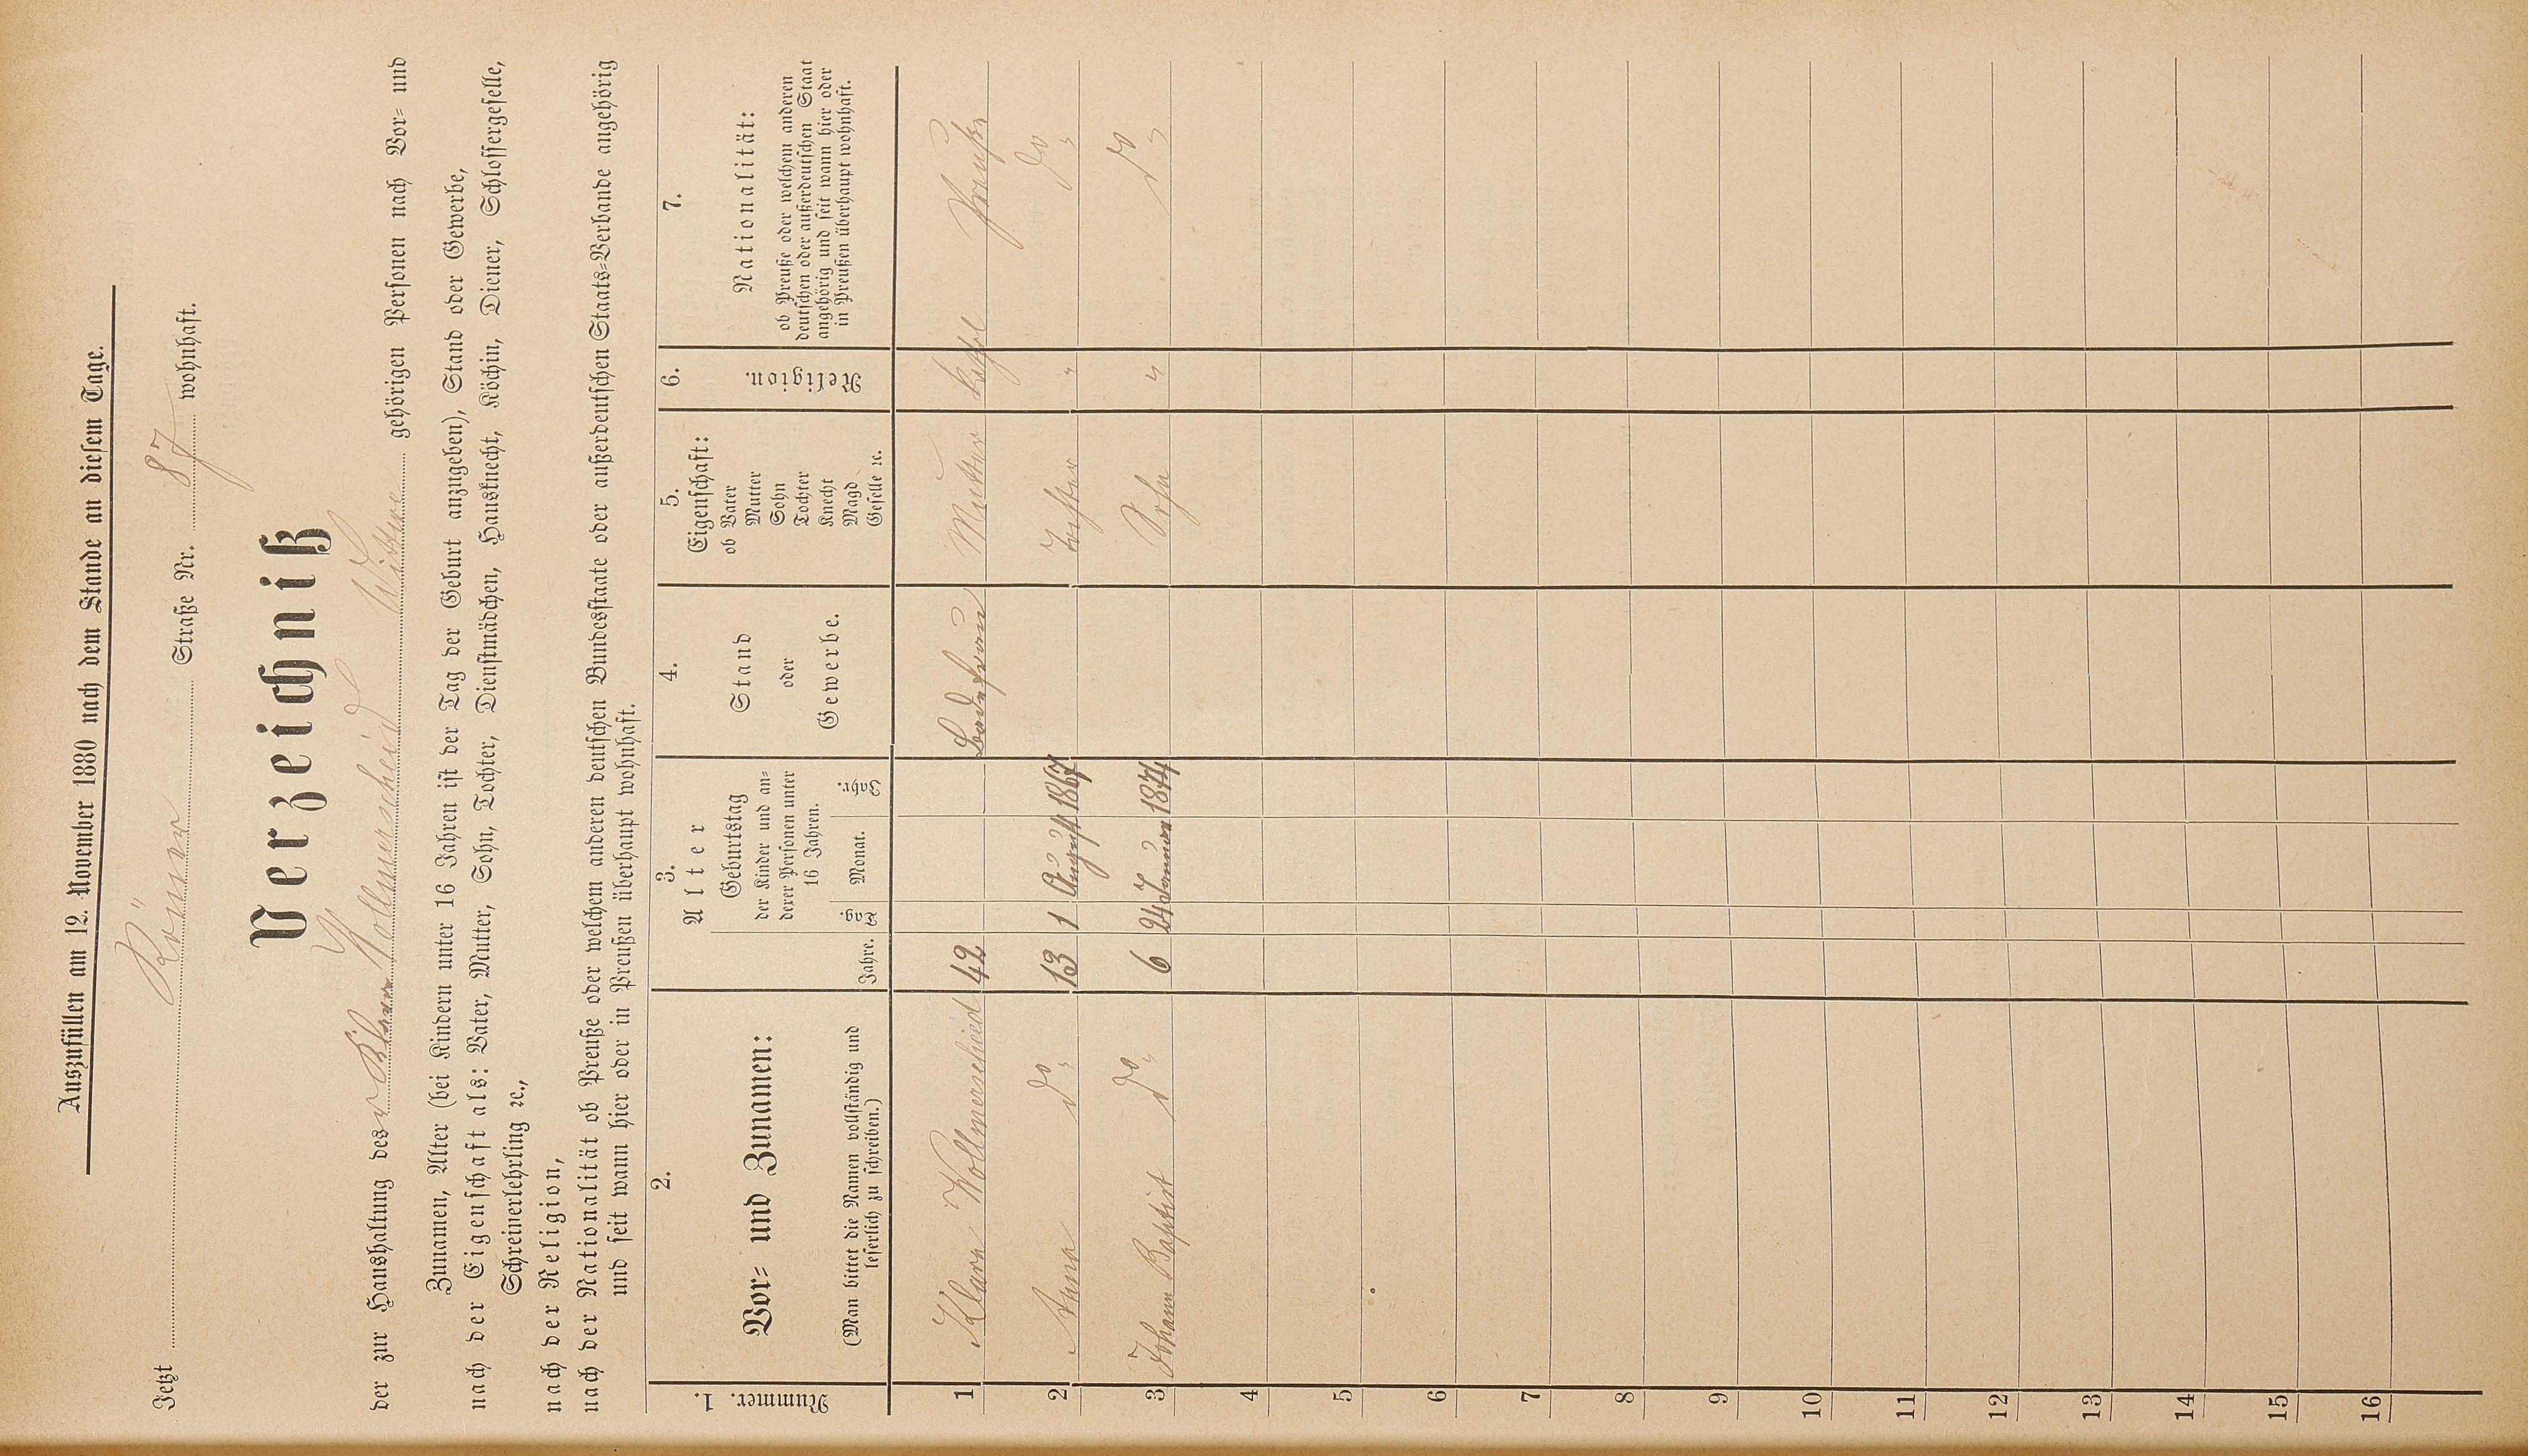 Auszufüllen am 12. November 1880 nach dem Stande an diesem Tage.
Jetzt Römer Straße Nr. 87 wohnhaft.
Verzeichniß
der zur Haushaltung des r Klara Wollmerscheid Wittwe gehörigen Personen nach Vor- und
Zunamen, Alter (bei Kindern unter 16 Jahren ist der Tag der Geburt anzugeben), Stand oder Gewerbe,
nach der Eigenschaft als: Vater, Mutter, Sohn, Tochter, Dienstmädchen, Hausknecht, Köchin, Diener, Schlossergeselle,
Schreinerlehrling ꝛc.,
nach der Religion,
nach der Nationalität ob Preuße oder welchem anderen deutschen Bundesstaate oder außerdeutschen Staats-Verbande angehörig
und seit wann hier oder in Preußen überhaupt wohnhaft.
1. 2. 3. 4. 5. 6. 7.
Nummer.
Vor- und Zunamen:
(Man bittet die Namen vollständig und
leserlich zu schreiben.)
Alter
Jahre.
Geburtstag
der Kinder und an-
derer Personen unter
16 Jahren.
Tag. Monat. Jahr.
Stand
oder
Gewerbe.
Eigenschaft:
ob Vater
Mutter
Sohn
Tochter
Knecht
Magd
Geselle ꝛc.
Religion.
Nationalität:
ob Preuße oder welchem anderen
deutschen oder außerdeutschen Staat
angehörig und seit wann hier oder
in Preußen überhaupt wohnhaft.
1 Klara Wollmerscheid 42 Badefrau Mutter Kathl Preuße
2 Anna do " 13 1 August 1867 Tochter " do "
3 Johann Baptist do " 6 24 Januar 1874 Sohn " do "
4
5
6
7
8
9
10
11
12
13
14
15
16